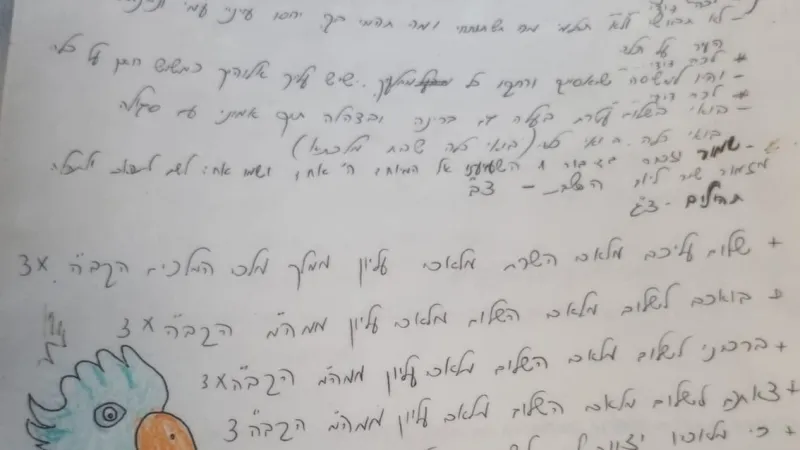 לא תבושי ולא תכלמי מה תשתוחחי ומה תהמי בך יחסו עניי עמי
העיר על תלה
* לכה דודי
- והיו למשסה שאסיך ורחקו כל מבלעיך. ישיש עליך אלוהיך כמשוש חתן על כלה
* לכה דודי
- בואי בשלום עטרת בעלה גם ברינה ובצהלה תוך אמוני עם סגולה
בואי כלה בואי כלה (בואי כלה שבת מלכתא)
- שמור וזכור בדבור 1 השמיענו אל המיוחד ה' אחד ושמו אחד לשם ולתפארת ולתהלה
מזמור שיר ליום השבת - צב
תהילים - צג
+ שלום עליכם מלאכי השרת מלאכי עליון ממלך מלכי המלכים הקב"ה 3x
+ בואכם לשלום מלאכי השלום מלאכי עליון ממה"מ הקב"ה 3x
+ ברכוני לשלום מלאכי השלום מלאכי עליון ממה"מ הקב"ה 3x
+ צאתכם לשלום מלאכי השלום מלאכי עליון ממה"מ הקב"ה 3
+ כי מלאכיו יצווה